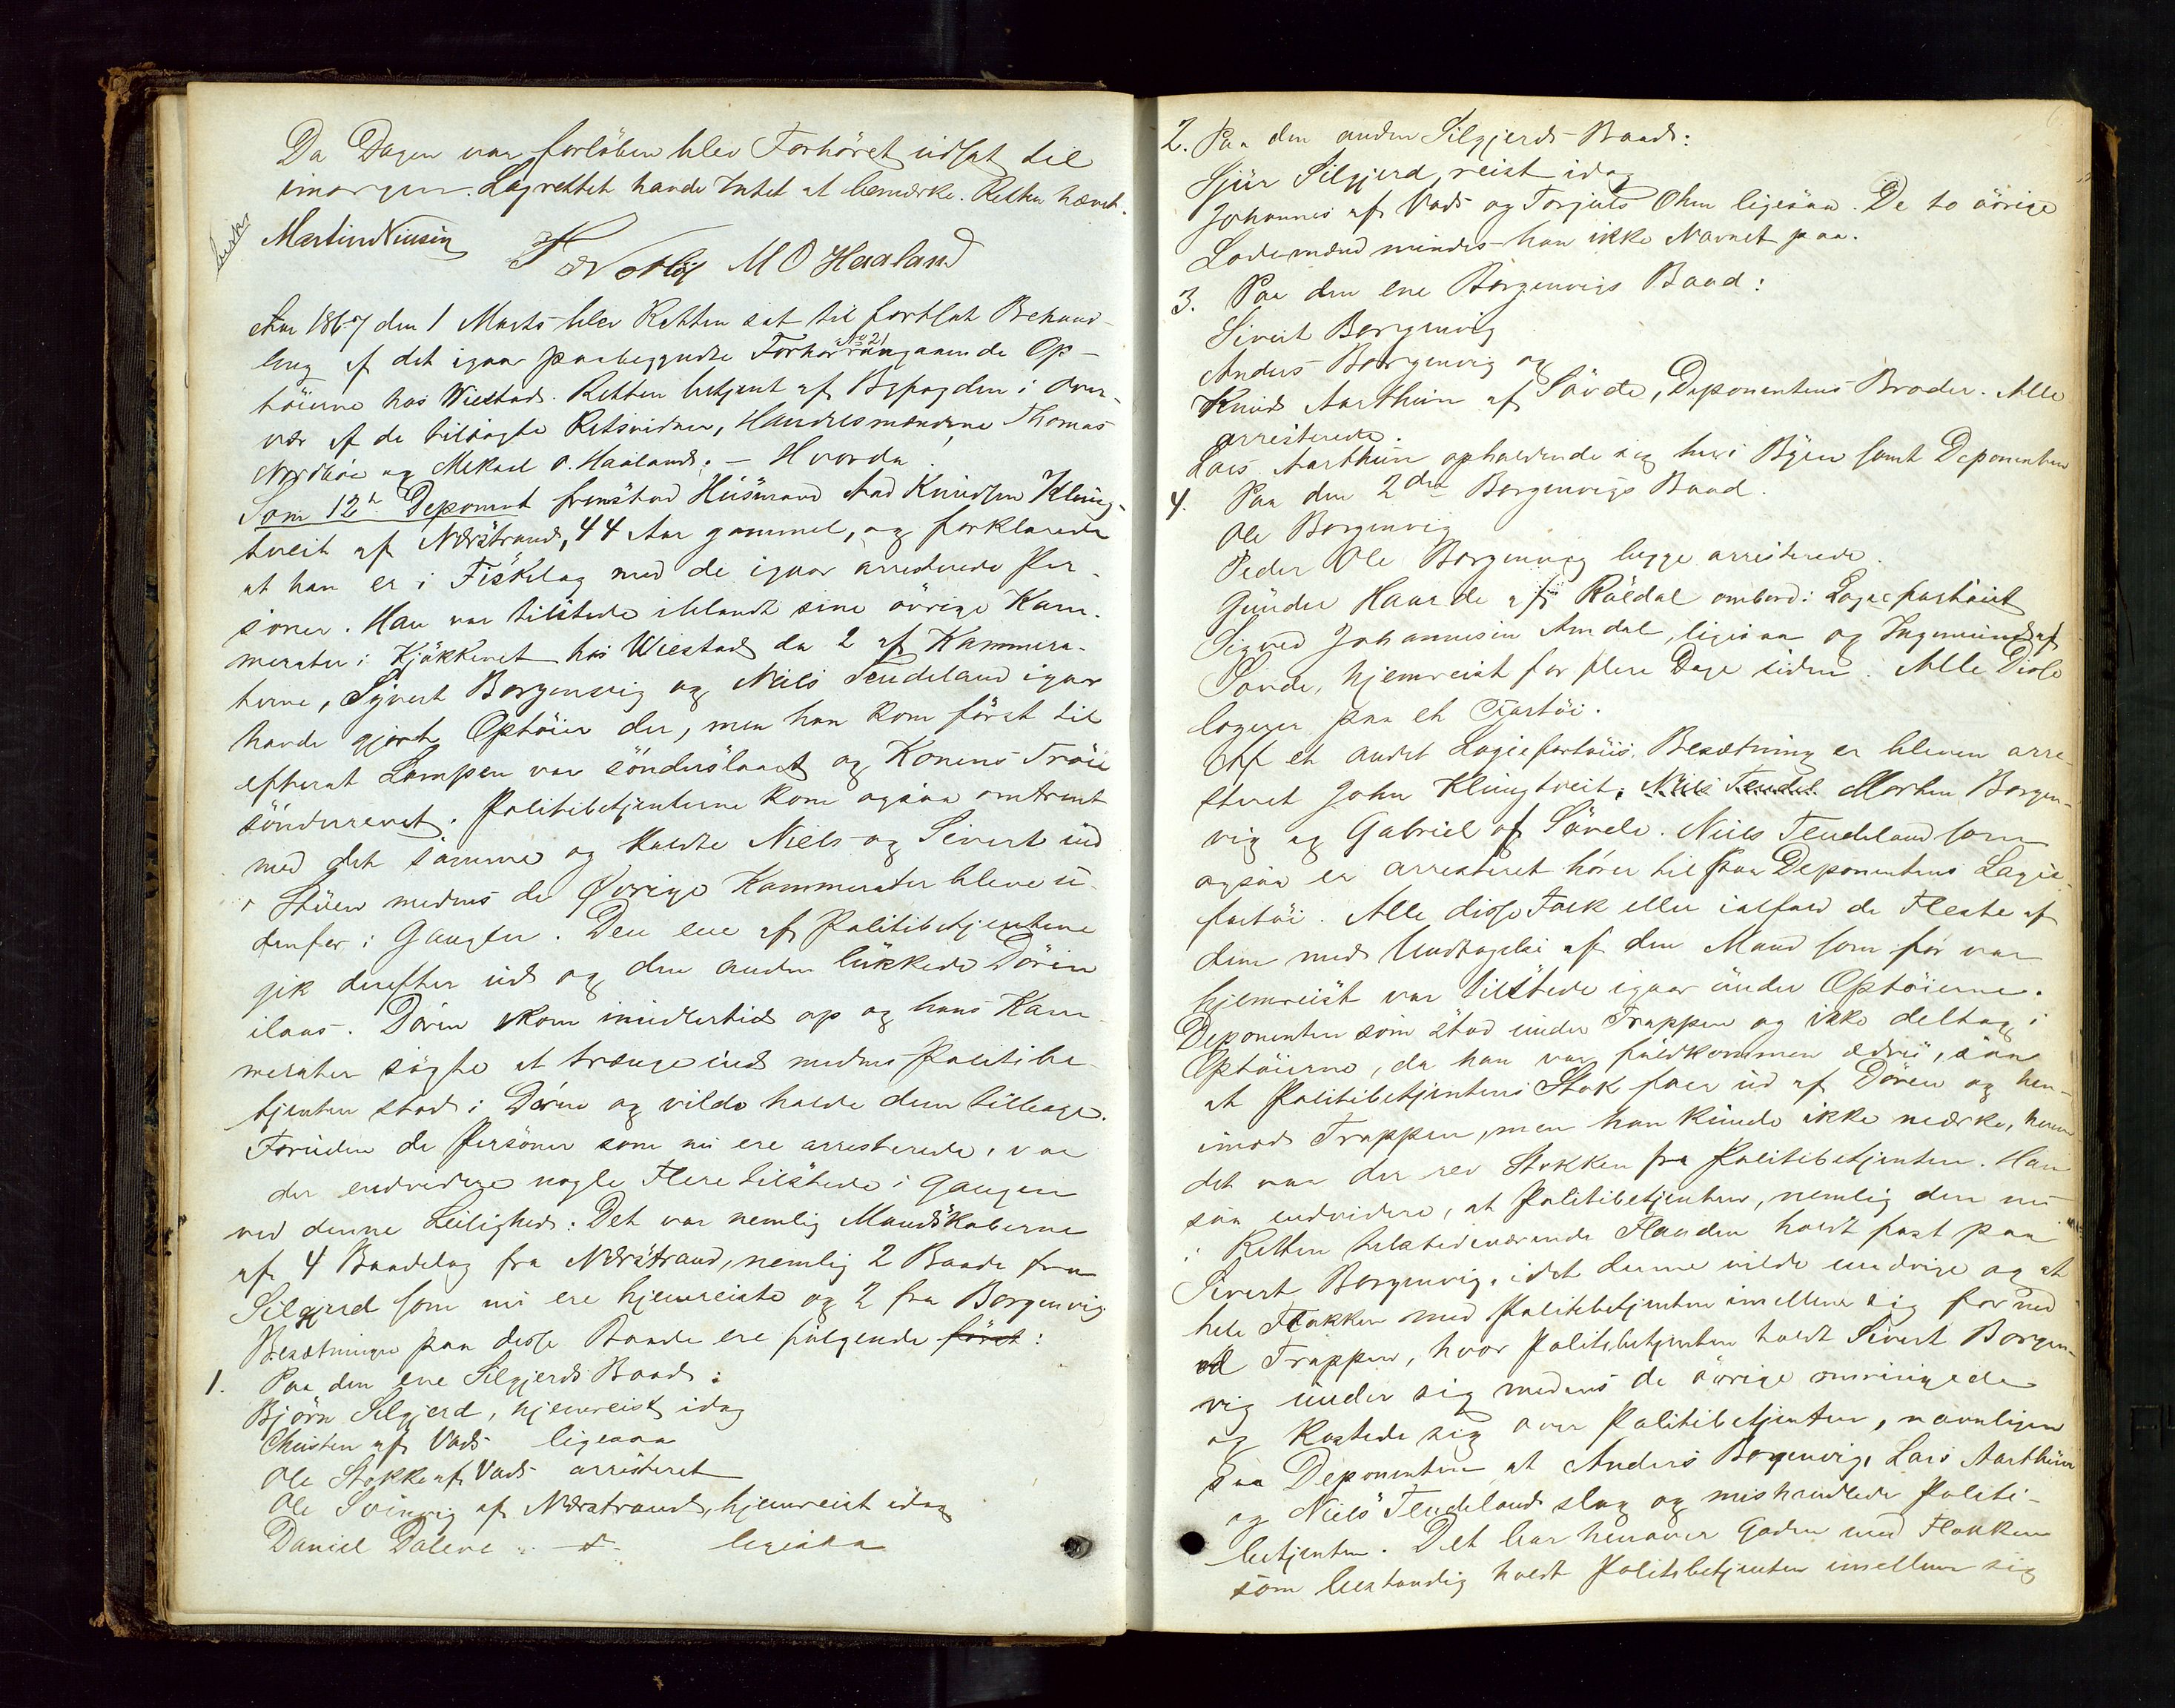 Da Dagen var forløben blev Forhöret udsat til
imorgen. Lagrettet havde Intet at bemærke. Retten hævet.
Martin Nilssen T Nordbö M O Haaland
Aar 1867 den 1 Marts blev Retten sat til fortsat Behand-
ling af det igaar paabegyndte Forhör No 21 angaaende Op-
töierne hos Wiestad. Retten betjent af Byfogden i Over-
vær af de tiltagte Retsvidner, Handelsmændene Thomas
Nordböe og Mikael O. Haaland; – Hvorda
Som 12te Deponent fremstod Huusmand Aad Knudsen Kling-
tveit af Nærstrand, 44 Aar gammel, og forklarede
at han er i Fiskelag med de igaar arresterede Per-
soner. Han var tilstede iblandt sine övrige Kam-
merater i Kjökkenet hos Wiestad da 2 af Kammera-
terne, Syvert Borgenvig og Niels Tendeland igaar
havde gjort Optöier der, men han kom först til
efterat Lampen var sönderslaaet og Konens Tröie
sönderrevet. Politibetjenterne kom ogsaa omtrent
med det samme og kaldte Niels og Sivert ind
i Stuen medens de Övrige Kammerater bleve u-
denfor i Gangen. Den ene af Politibetjentene
gik derefter ud og den anden lukkede Dören
ilaas. Dören kom imidlertid op og hans Kam-
merater sögte at trænge ind medens Politibe-
tjenten stod i Dören og vilde holde dem tilbage.
Foruden de Personer som nu ere arresterede, var
der endvidere nogle Flere tilstede i Gangen
ved denne Leilighed: Det var nemlig Mandskaberne
af 4 Baadelag fra Nærstrand, nemlig 2 Baade fra
Silgjerd som nu ere hjemreiste og 2 fra Borgenvig
Besætningen paa disse Baade ere fölgende först:
1. Paa den ene Silgjerds Baad:
Björn Silgjerd, hjemreist idag
Christen af Vads ligesaa
Ole Stokke af Vads arresteret
Ole Svinvig af Nærstrand, hjemreist idag
Daniel Dalene – " – ligesaa
2. Paa den anden Silgjerds Baad:
Sjur Silgjerd, reist idag
Johannes af Vads og Torjuls Ohm ligesaa. De to övrige
Lodsmænd mindes han ikke Navnet paa.
3. Paa den ene Borgenvigs Baad:
Sivert Borgenvig
Anders Borgenvig og
Knud Aarthun af Søvde, Deponentens Broder. Alle
arresterede.
Lars Aarthun opholdende sig her i Byen samt Deponenten
4. Paa den 2den Borgenvigs Baad.
Ole Borgenvig
Peder Ole Borgenvig begge arresterede.
Gunder Haarde af Röldal ombord i Logiefartöiet
Sigurd Johannesen Amdal, ligesaa og Ingemund af
Søvde, hjemreist for flere Dage siden. Alle Disse
logerer paa et Fartöi.
Af et andet Logiefartöis Besætning er bleven arre-
steret John Klingtveit, Niels Tendel Morten Borgen-
vig og Gabriel af Sövde. Niels Tendeland som
ogsaa er arresteret hörer til paa Deponentens Logie-
fartöi. Alle disse Folk eller ialfald de Fleste af
dem med Undtagelse af den Mand som för var
hjemreist var tilstede igaar under Optöierne.
Deponenten som stod under Trappen og ikke deltog i
Optöierne, da han var fuldkommen ædru, saa
at Politibetjentens Stok foer ud af Dören og hen-
imod Trappen, men han kunde ikke mærke, hvem
det var der rev Stokken fra Politibetjenten. Han
saa endvidere, at Politibetjenten, nemlig den nu
i Retten tilstedeværende Flanden holdt fast paa
Sivert Borgenvig, idet denne vilde undvige og at
hele Flokken med Politibetjenten imellem sig for ned
ad Trappen, hvor Politibetjenten holdt Sivert Borgen-
vig under sig medens de övrige omringede
og kastede sig over Politibetjenten, navnligen
saa Deponenten at Anders Borgenvig, Lars Aarthun
og Niels Tendeland slog og mishandlede Politi-
betjenten. Det bar henover Gaden med Flokken
som bestandig holdt Politibetjenten imellem sig